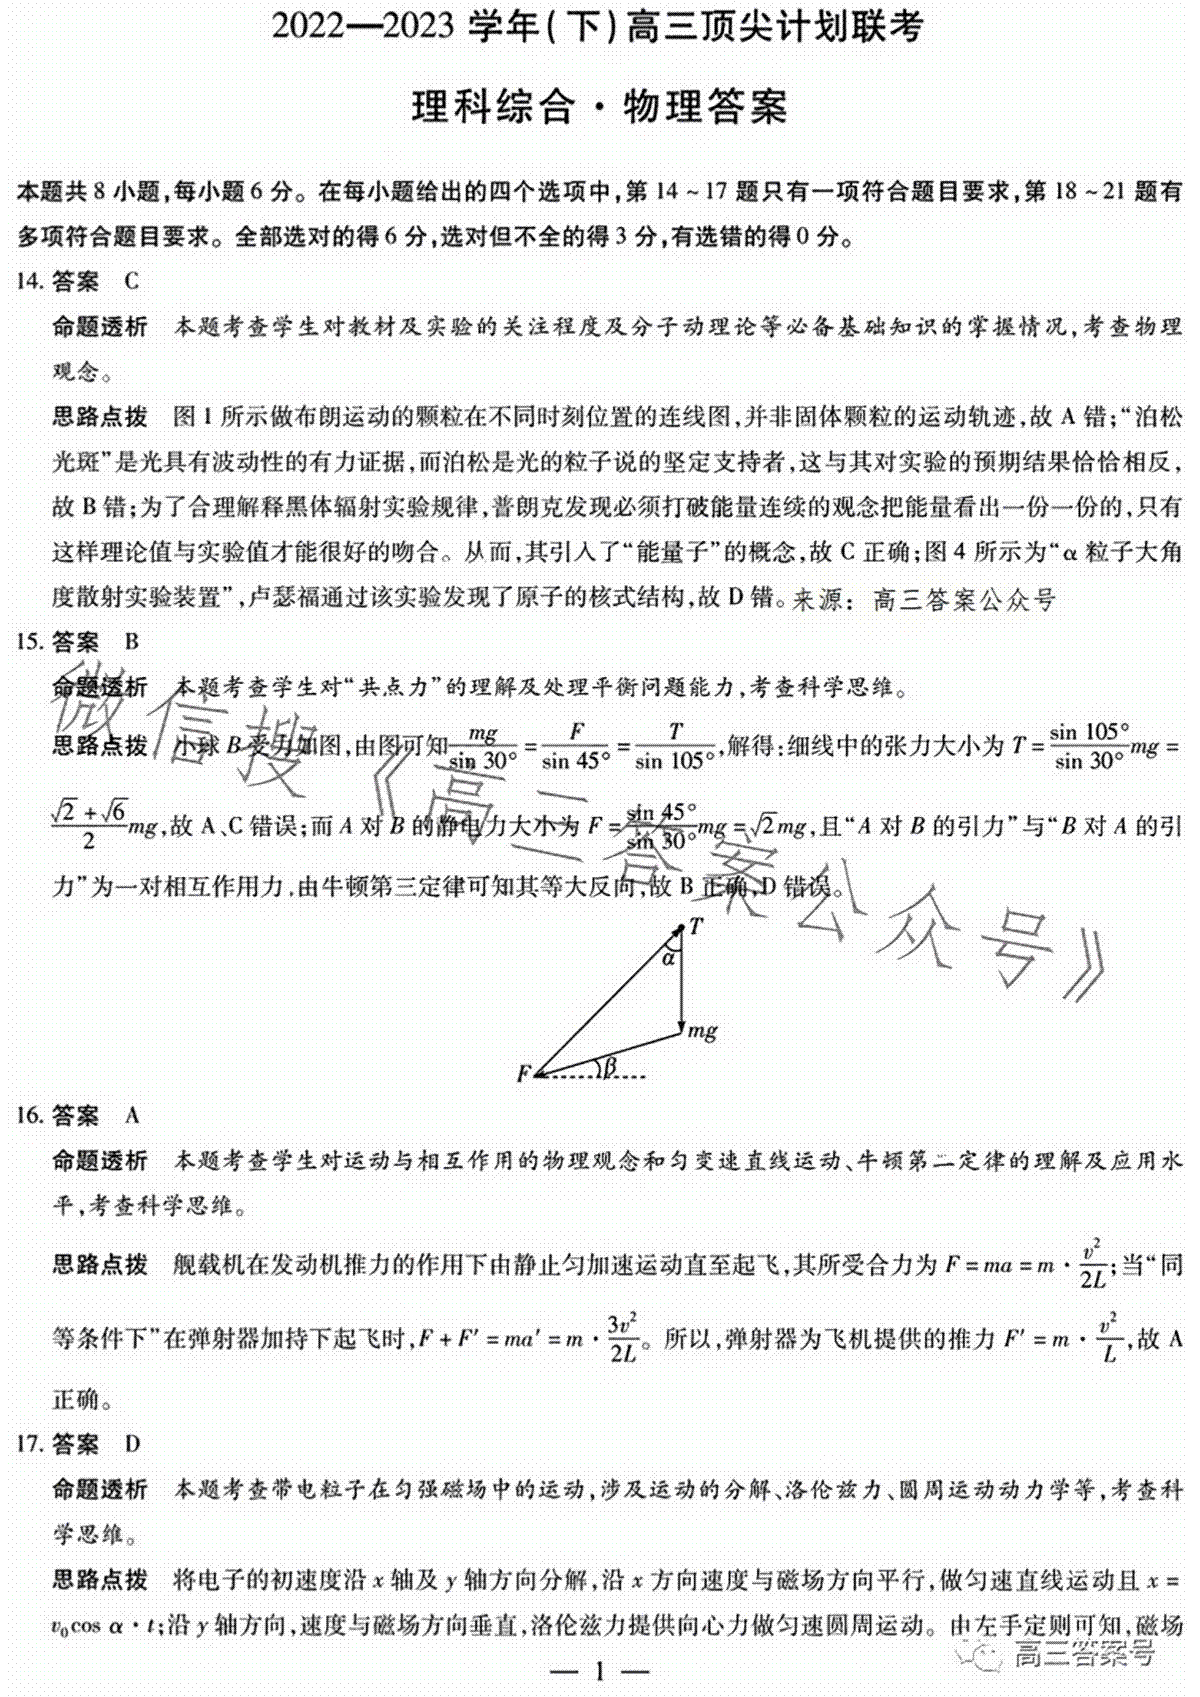 2022—2023 学年(下)高三顶尖计划联考
理科综合·物理答案
本题共 8 小题,每小题 6 分。在每小题给出的四个选项中,第 14 ~ 17 题只有一项符合题目要求,第 18 ~ 21 题有
多项符合题目要求。全部选对的得 6 分,选对但不全的得 3 分,有选错的得 0 分。
14. 答案 C
命题透析 本题考查学生对教材及实验的关注程度及分子动理论等必备基础知识的掌握情况,考查物理
观念。
思路点拨 图 1 所示做布朗运动的颗粒在不同时刻位置的连线图,并非固体颗粒的运动轨迹,故 A 错;“泊松
光斑”是光具有波动性的有力证据,而泊松是光的粒子说的坚定支持者,这与其对实验的预期结果恰恰相反,
故 B 错;为了合理解释黑体辐射实验规律,普朗克发现必须打破能量连续的观念把能量看出一份一份的,只有
这样理论值与实验值才能很好的吻合。从而,其引入了“能量子”的概念,故 C 正确;图 4 所示为“α 粒子大角
度散射实验装置”,卢瑟福通过该实验发现了原子的核式结构,故 D 错。来源：高三答案公众号
15. 答案 B
命题透析 本题考查学生对“共点力”的理解及处理平衡问题能力,考查科学思维。
思路点拨 小球 B 受力如图,由图可知 mg/sin 30° = F/sin 45° = T/sin 105°,解得:细线中的张力大小为 T = sin 105°/sin 30° mg =
(√2 + √6)/2 mg,故 A、C 错误;而 A 对 B 的静电力大小为 F = sin 45°/sin 30° mg = √2 mg,且“A 对 B 的引力”与“B 对 A 的引
力”为一对相互作用力,由牛顿第三定律可知其等大反向,故 B 正确,D 错误。
微信搜《高三答案公众号》
T
α
mg
F
β
16. 答案 A
命题透析 本题考查学生对运动与相互作用的物理观念和匀变速直线运动、牛顿第二定律的理解及应用水
平,考查科学思维。
思路点拨 舰载机在发动机推力的作用下由静止匀加速运动直至起飞,其所受合力为 F = ma = m · v²/2L;当“同
等条件下”在弹射器加持下起飞时,F + F′ = ma′ = m · 3v²/2L。所以,弹射器为飞机提供的推力 F′ = m · v²/L,故 A
正确。
17. 答案 D
命题透析 本题考查带电粒子在匀强磁场中的运动,涉及运动的分解、洛伦兹力、圆周运动动力学等,考查科
学思维。
思路点拨 将电子的初速度沿 x 轴及 y 轴方向分解,沿 x 方向速度与磁场方向平行,做匀速直线运动且 x =
v₀cos α · t;沿 y 轴方向,速度与磁场方向垂直,洛伦兹力提供向心力做匀速圆周运动。由左手定则可知,磁场
— 1 —
高三答案号